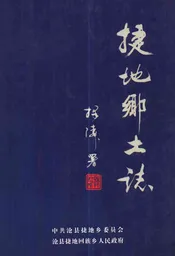 捷地鄉土誌
中共沧县捷地乡委员会
沧县捷地回族乡人民政府